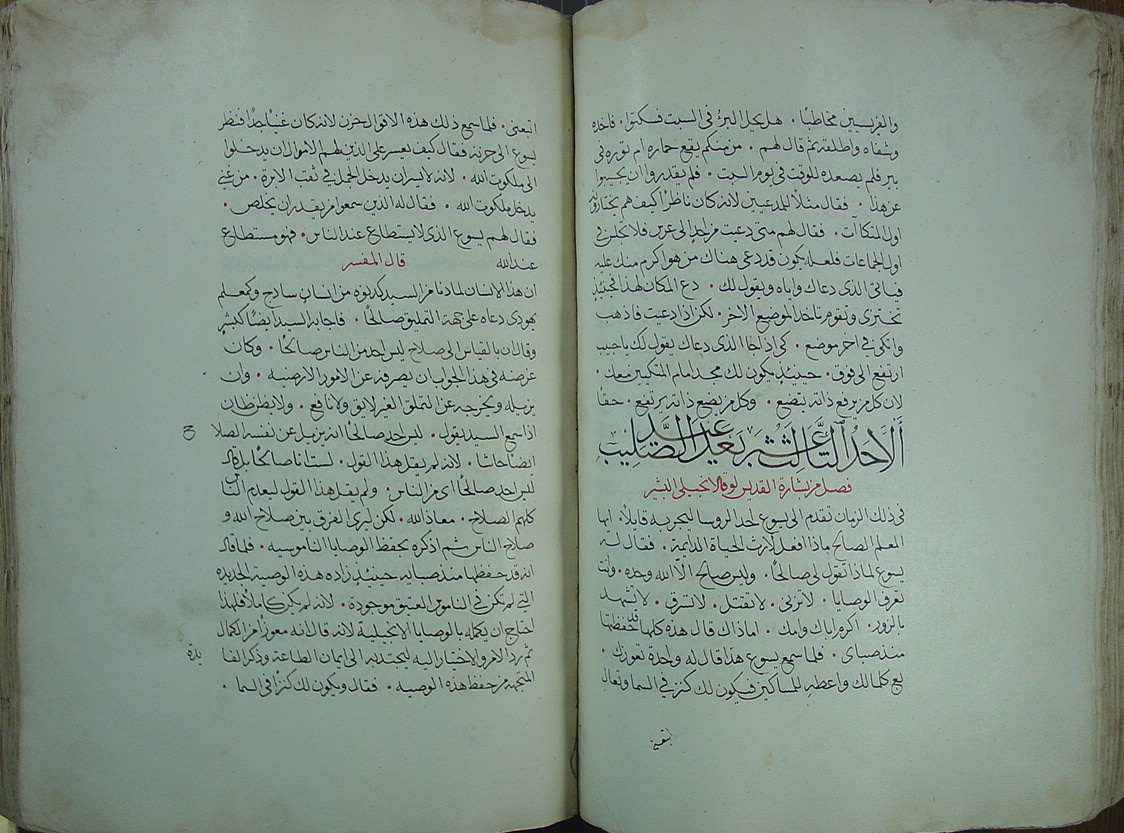 والفريسيين مخاطبًا • هل يحل البرؤ في السبت فسكتوا • فاخذه
وشفاه واطلقه ثم قال لهم • من منكم يقع حماره ام ثوره في
بير فلم يصعده للوقت في يوم السبت • فلم يقدروا ان يجيبوا
عن هذا • فقال مثلاً للمدعيين لانه كان ناظرًا كيف هم يختارون
اول المتكاآت • فقال لهم متى دعيت من احد الى عرس فلا تجلس في
اول الجماعات فلعله يكون قد دعى هناك من هو اكرم منك عليه
فياتى الذى دعاك واياه ويقول لك • دع المكان لهذا فحينيذٍ
تختزى وتقوم تاخد الموضع الاخر • لكن اذا دعيت فاذهب
واتكى في اخر موضع • كى اذا جا الذى دعاك يقول لك يا حبيب
ارتفع الى فوق • حينيذٍ يكون لك مجد امام المتكيين معك •
لان كل من يرفع ذاته يتضع • وكل من يضع ذاته يرتفع • حقا
ألأحد التاسع عشر بعد عيد الصليب
فصل من بشارة القديس لوقا الانجيلى البشير
في ذلك الزمان تقدم الى يسوع احد الروسا ليجربه قايلاً • ايها
المعلم الصالح ماذا افعل لارث الحياة الدايمة • فقال له
يسوع لماذا تقول لى صالحًا • وليس صالح الا الله وحده • وانت
تعرف الوصايا • لا تزنى • لا تقتل • لا تسرق • لا تشهد
بالزور • اكرم اباك وامك • اما ذاك قال هذه كلها قد حفظتها
منذ صباى • فلما سمع يسوع هذا قال له واحدة تعوزك •
بع كلما لك واعطهِ للمساكين فيكون لك كنز في السما وتعال
اتبعنى • فلما سمع ذلك هذه الاقوال حزن لانه كان غنيًا جدًا فنظر
يسوع الى حزنه فقال كيف يعسر على الذين لهم الاموال ان يدخلوا
الى ملكوت الله • لانه لايسر ان يدخل الجمل في نقب الابرة • من غنى
يدخل ملكوت الله • فقال له الذين سمعوا من يقدر ان يخلص •
فقال لهم يسوع الذى لا يستطاع عند الناس • فهو مستطاع
عند الله قال المفسر
ان هذا الانسان لما دنا من السيد كدنوه من انسان سادج وكمعلم
يهودى دعاه على جهة التملق صالحًا • فاجابه السيد ايضًا كبشرٍ
وقال ان بالقياس الى صلاح ليس احد من الناس صالحًا • وكان
غرضه في هذا الجواب ان يصرفه عن الامور الارضيه • وان
يزيله ويخرجه عن التملق الغير لايق ولا نافع • ولا يظن ظان
اذا سمع السيد يقول • ليس احد صالحًا انه يزيل عن نفسه الصلاح
ايضًا حاشا • لانه لم يقل هذا القول • لست انا صالحًا بل قال
ليس احد صالحًا اى من الناس • ولم يقل هذا القول ليعدم الناس
كلهم الصلاح • معاذ الله • لكن ليرى الفرق بين صلاح الله و
صلاح الناس ثم اذكره بحفظ الوصايا الناموسيه • فلما قال
انه قد حفظها منذ صبايه حينيذٍ زاده هذه الوصية الجديده
التى لم تكن في الناموس العتيق موجودة • لانه لم يكن كاملاً فلهذا
احتاج ان يكمله بالوصايا الانجيلية لانه قال انه معوزًا من الكمال
ثم رد الامر والاختيار اليه ليجتذبه الى ايمان الطاعة وذكر الفايدة
المتجهه من حفظ هذه الوصيه • فقال ويكون لك كنزًا في السما •